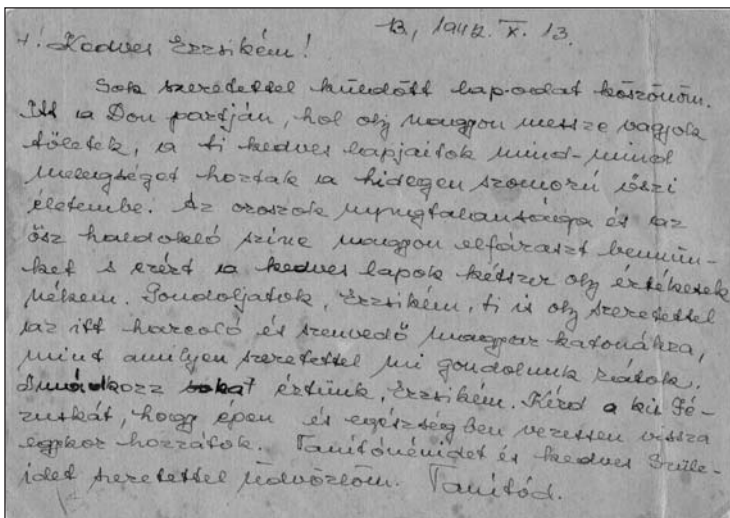 B, 1942. X. 13.
H! Kedves Erzsikém!
Sok szeretettel küldött lap-odat köszönöm.
Itt a Don partján, hol oly nagyon messze vagyok
tőletek, a ti kedves lapjaitok mind-mind
melegséget hoztak a hidegen szomorú őszi
életembe. Az oroszok nyugtalansága és az
ősz haldokló színe nagyon elfáraszt bennün-
ket s ezért a kedves lapok kétszer oly értékesek
nékem. Gondoljatok, Erzsikém, ti is oly szeretettel
az itt harcoló és szenvedő magyar katonákra,
mint amilyen szeretettel mi gondolunk rátok.
Imádkozz sokat értünk, Erzsikém. Kérd a kis Jé-
zuskát, hogy épen és egészségben vezessen vissza
egykor hozzátok. Tanítónénidet és kedves Szüle-
idet szeretettel üdvözlöm. Tanítód.